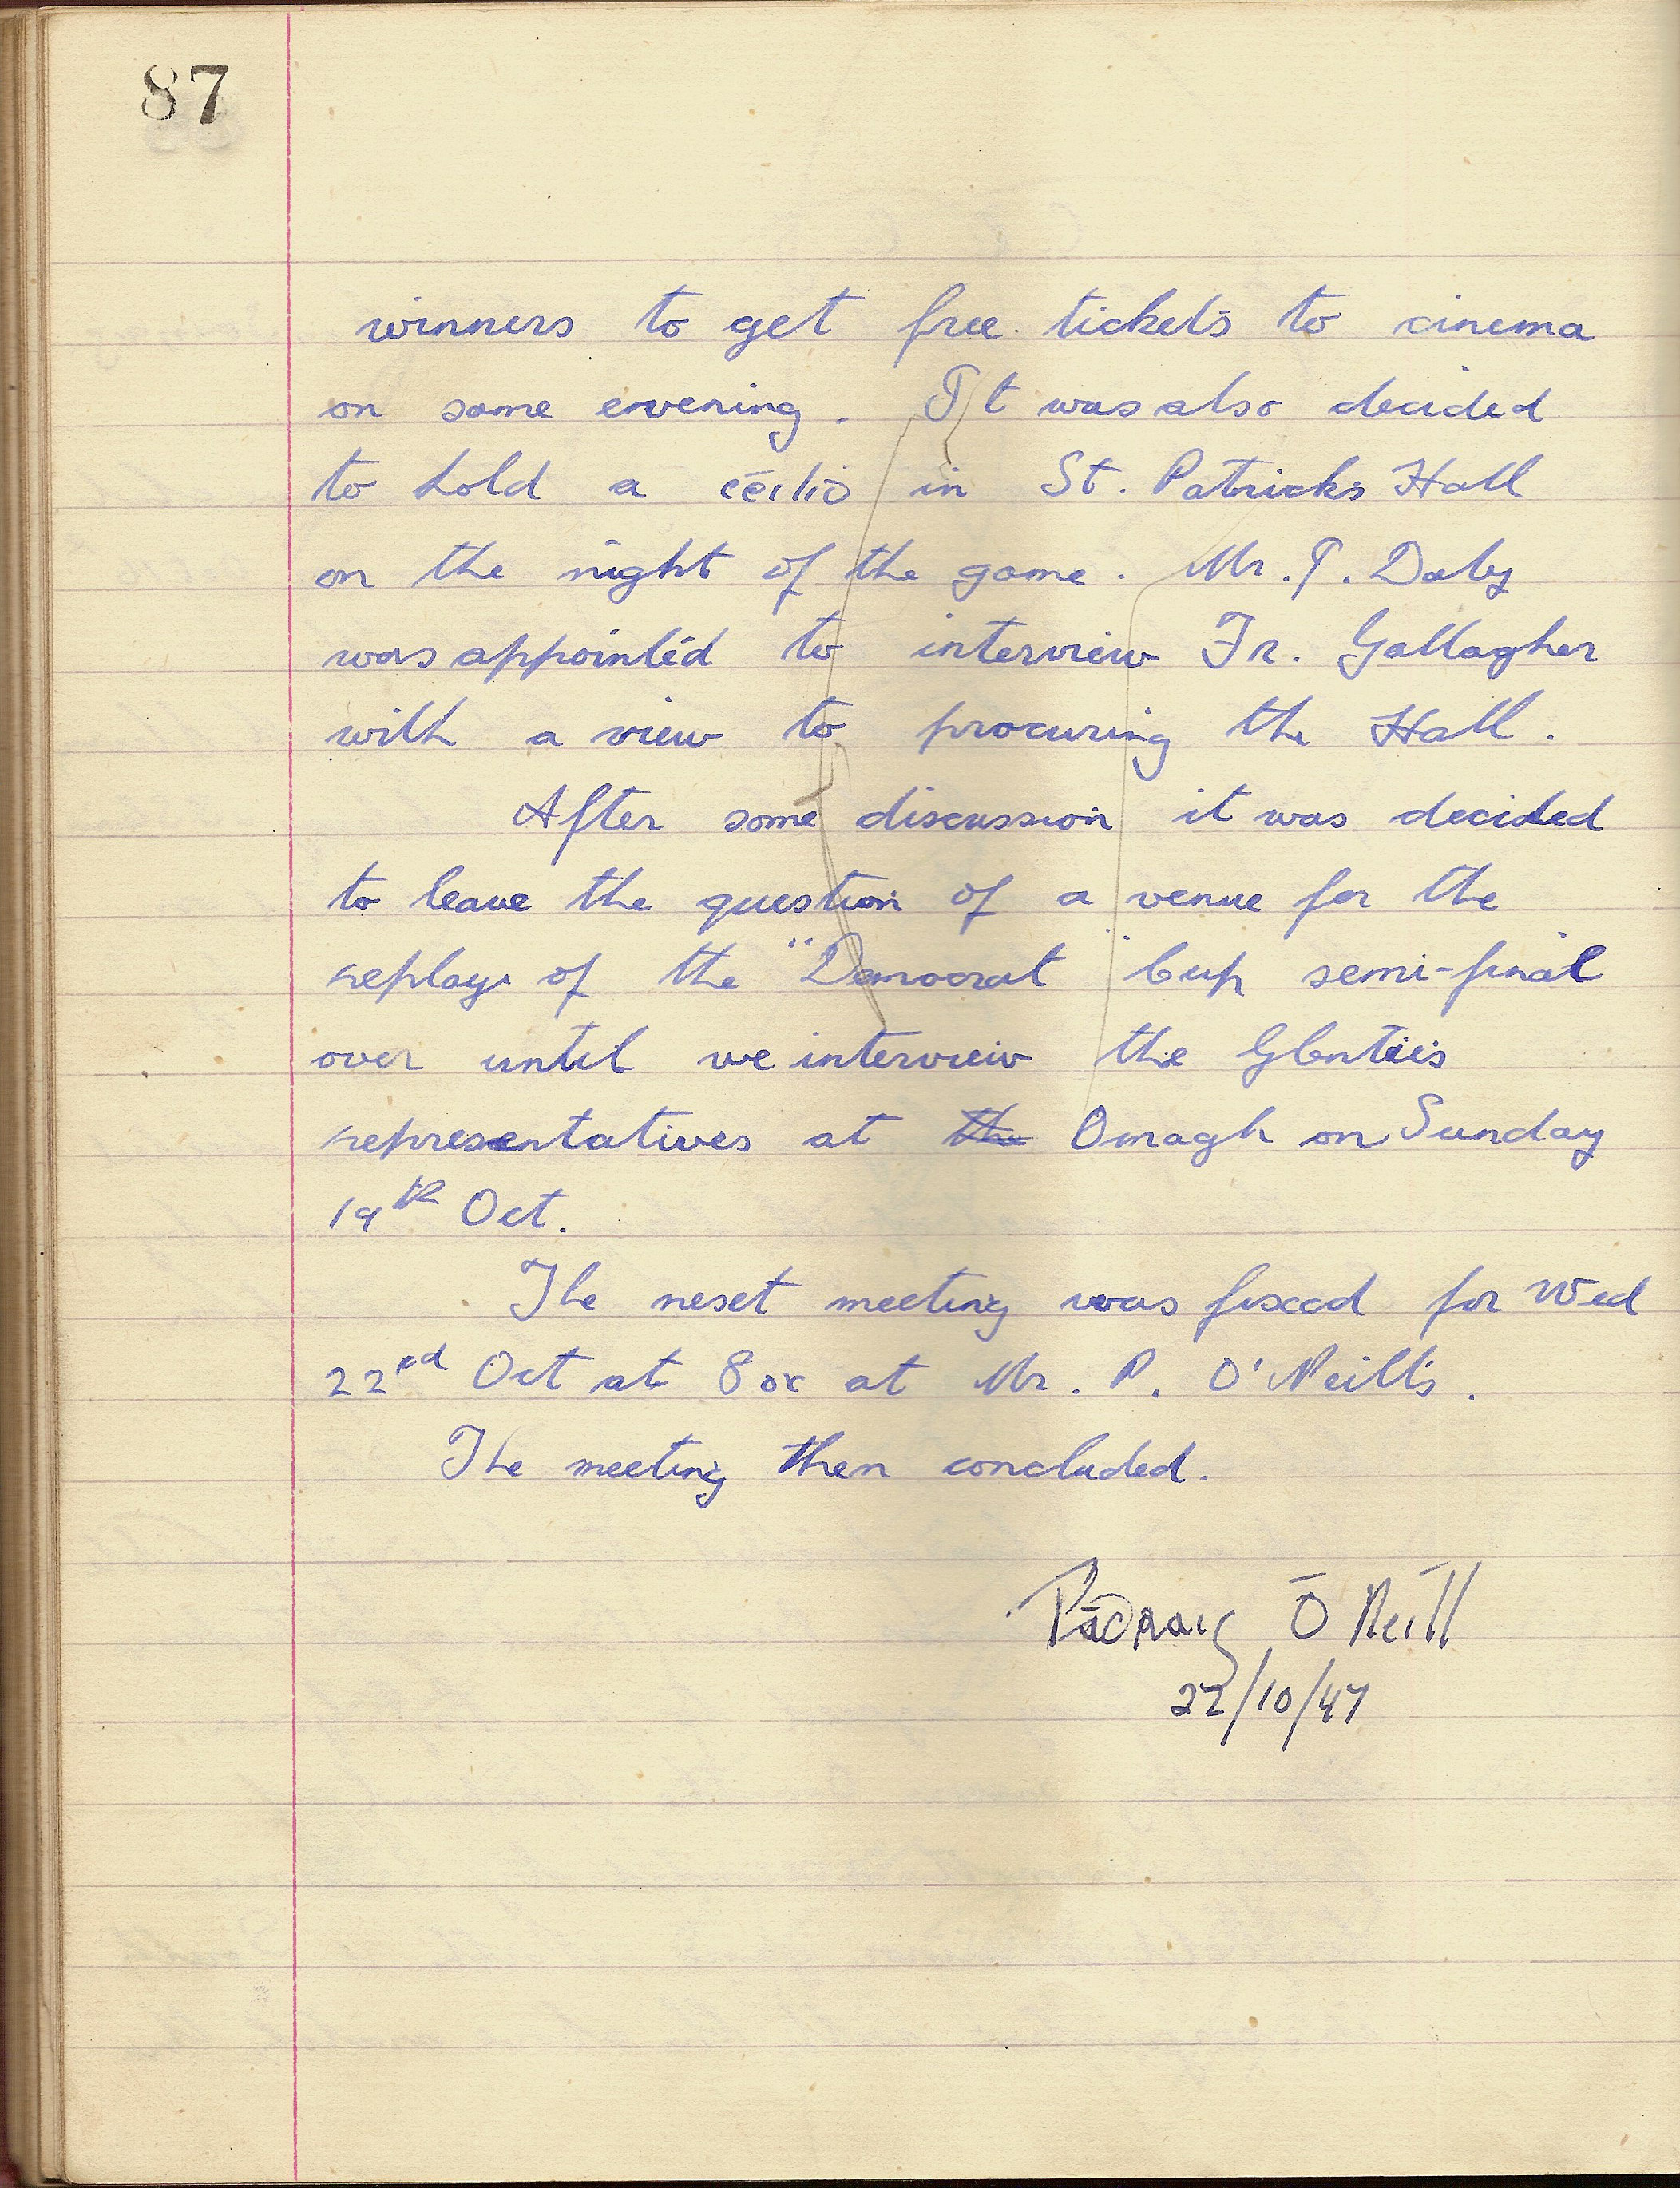 87
winners to get free tickets to cinema
on some evening. It was also decided
to hold a céilió in St. Patricks Hall
on the night of the game. Mr. P. Daly
was appointed to interview Fr. Gallagher
with a view to procuring the Hall.
After some discussion it was decided
to leave the question of a venue for the
replay of the "Democrat" Cup semi-final
over until we interview the Glenties
representatives at the Omagh on Sunday
19th Oct.
The next meeting was fixed for Wed
22nd Oct at 8 oc at Mr. P. O'Neill's.
The meeting then concluded.
Pádraig Ó Néill
22/10/47